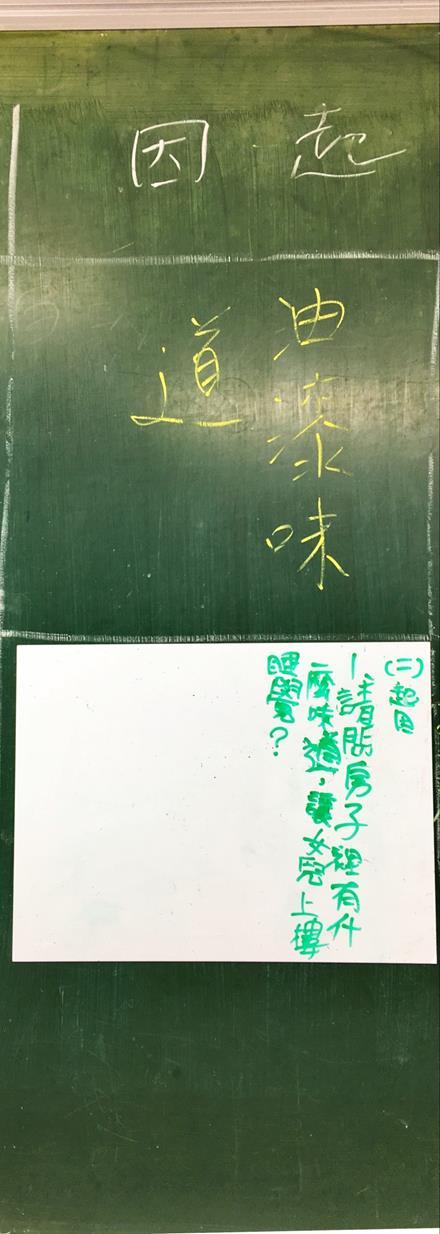 起因
油漆味
道
(二)起因
1.請問房子裡有什
麼味道,讓女兒上樓
睡覺?